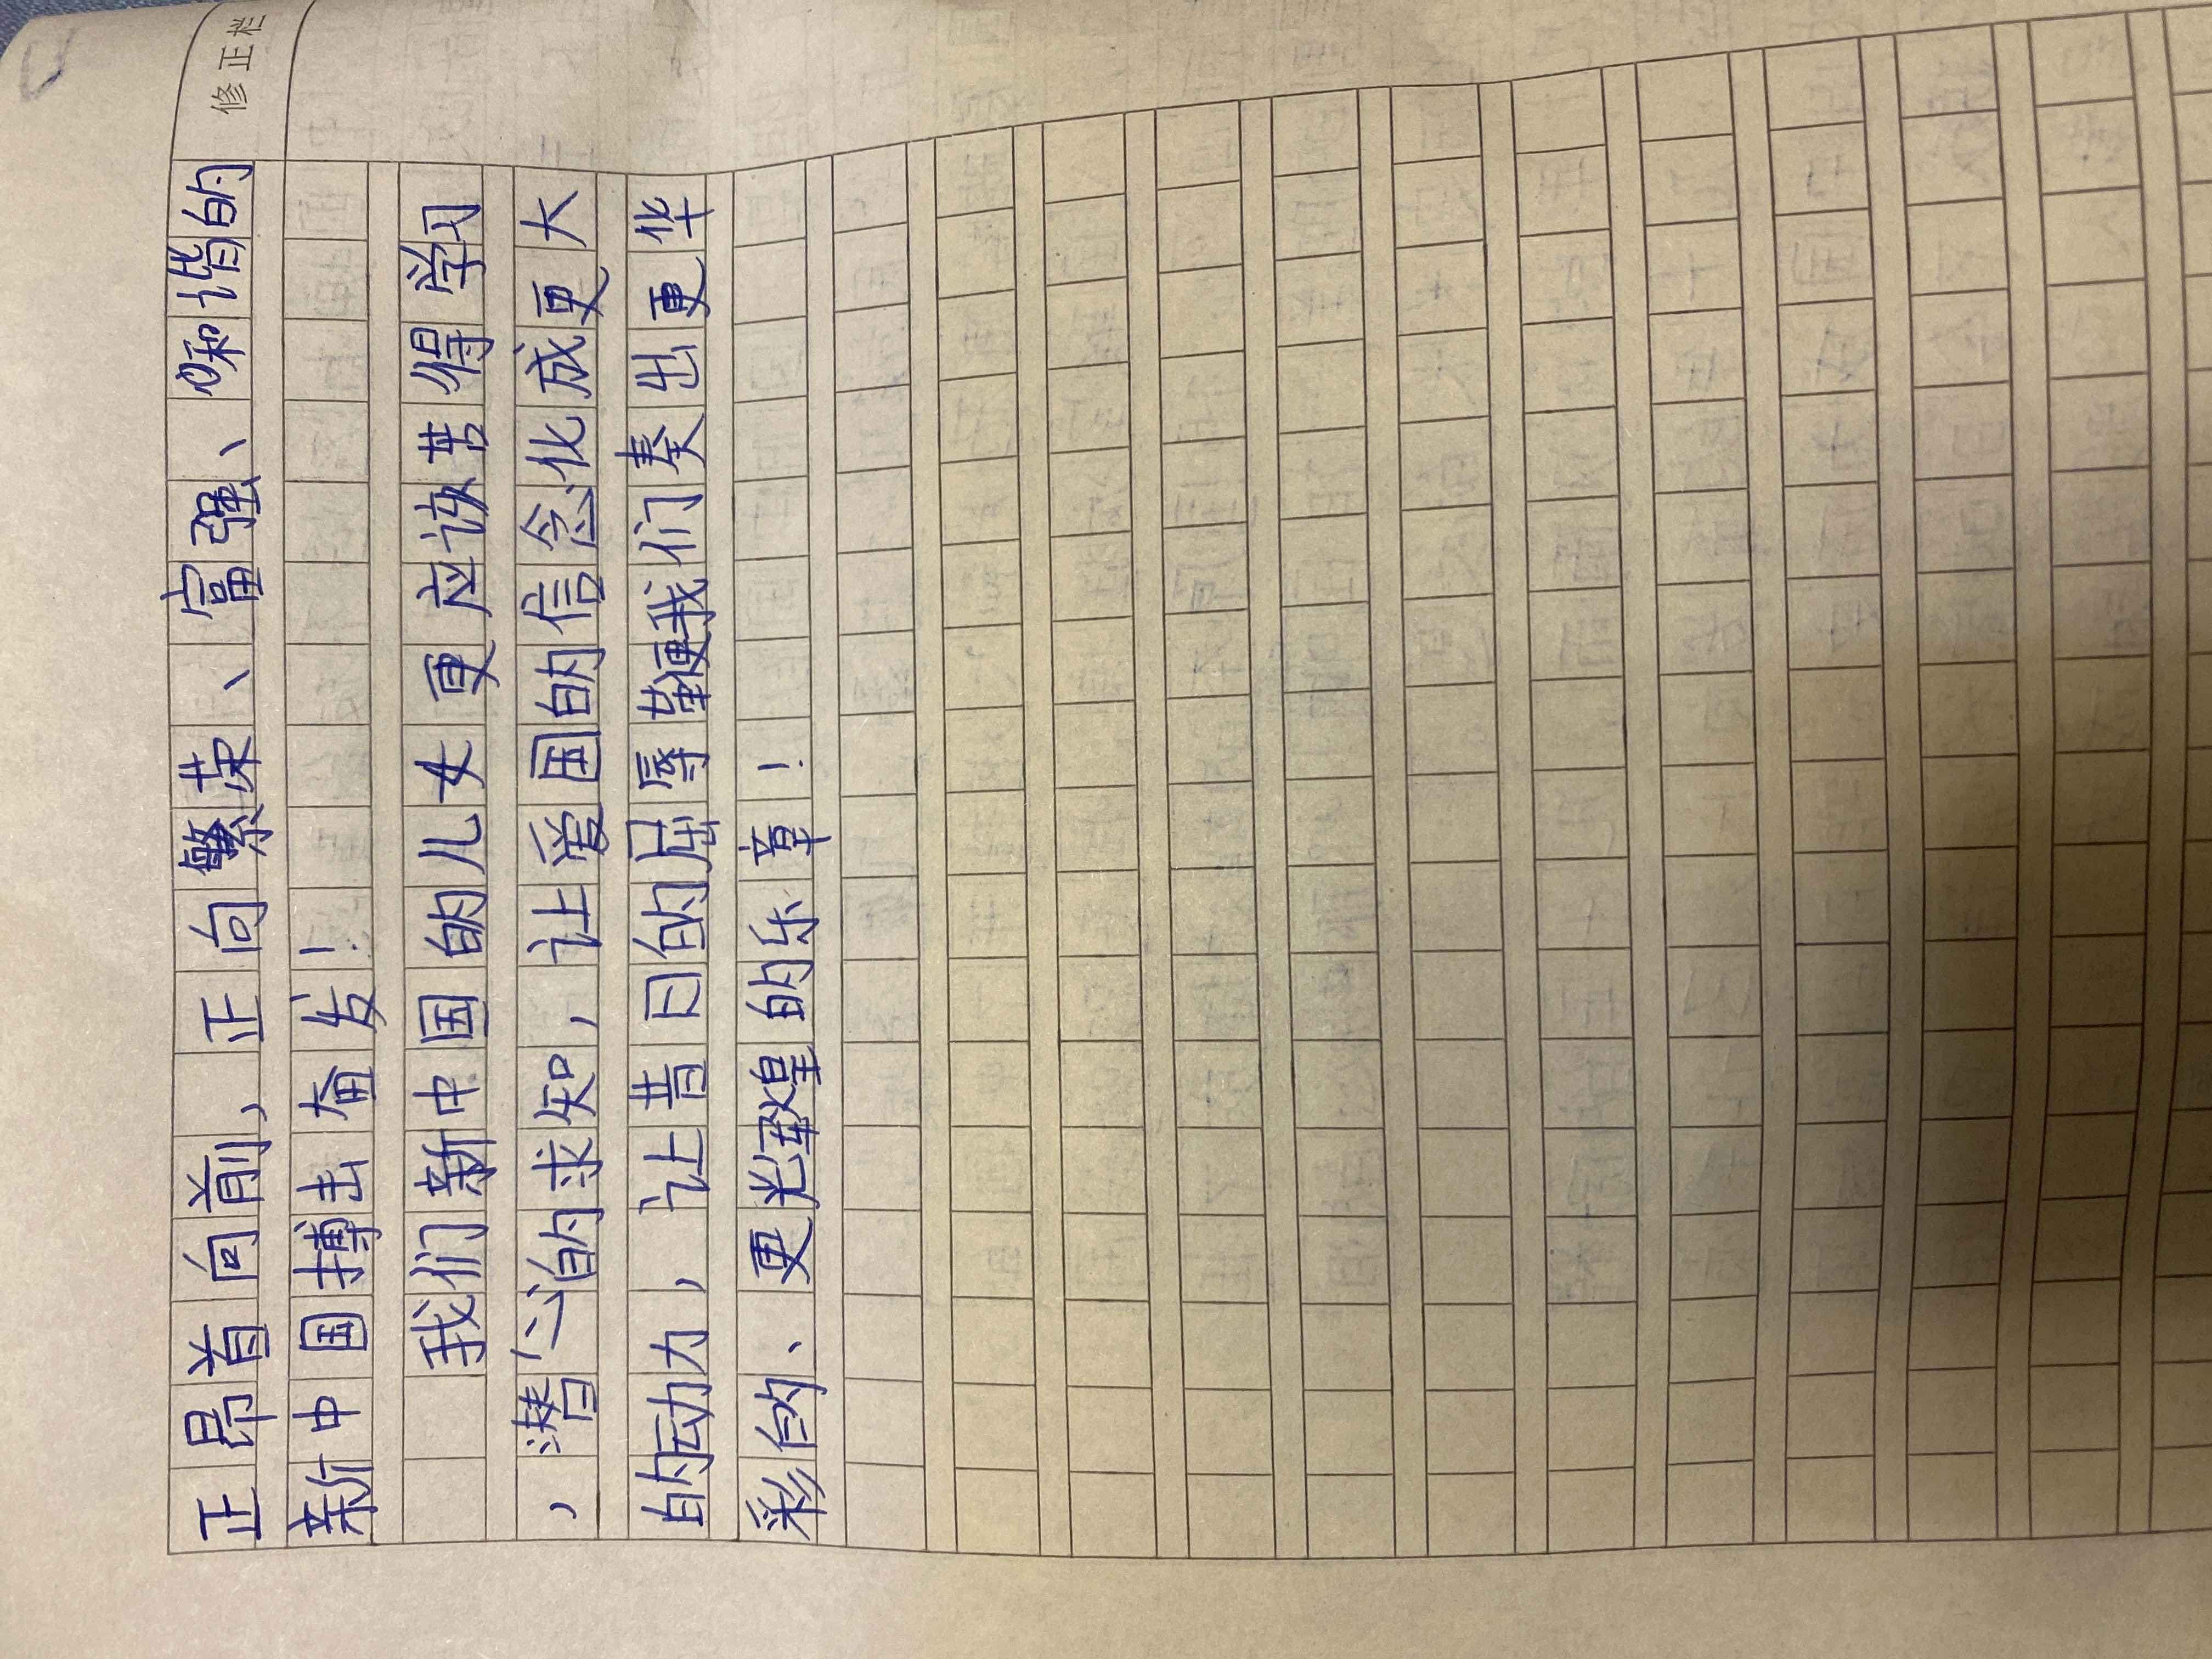 修正栏
正昂首向前，正向繁荣、富强、和谐的
新中国搏击奋发！
我们新中国的儿女更应该懂得学习
，潜心的求知，让爱国的信念化成更大
的动力，让昔日的屈辱鞭我们奏出更华
彩的、更光辉煌的乐章！